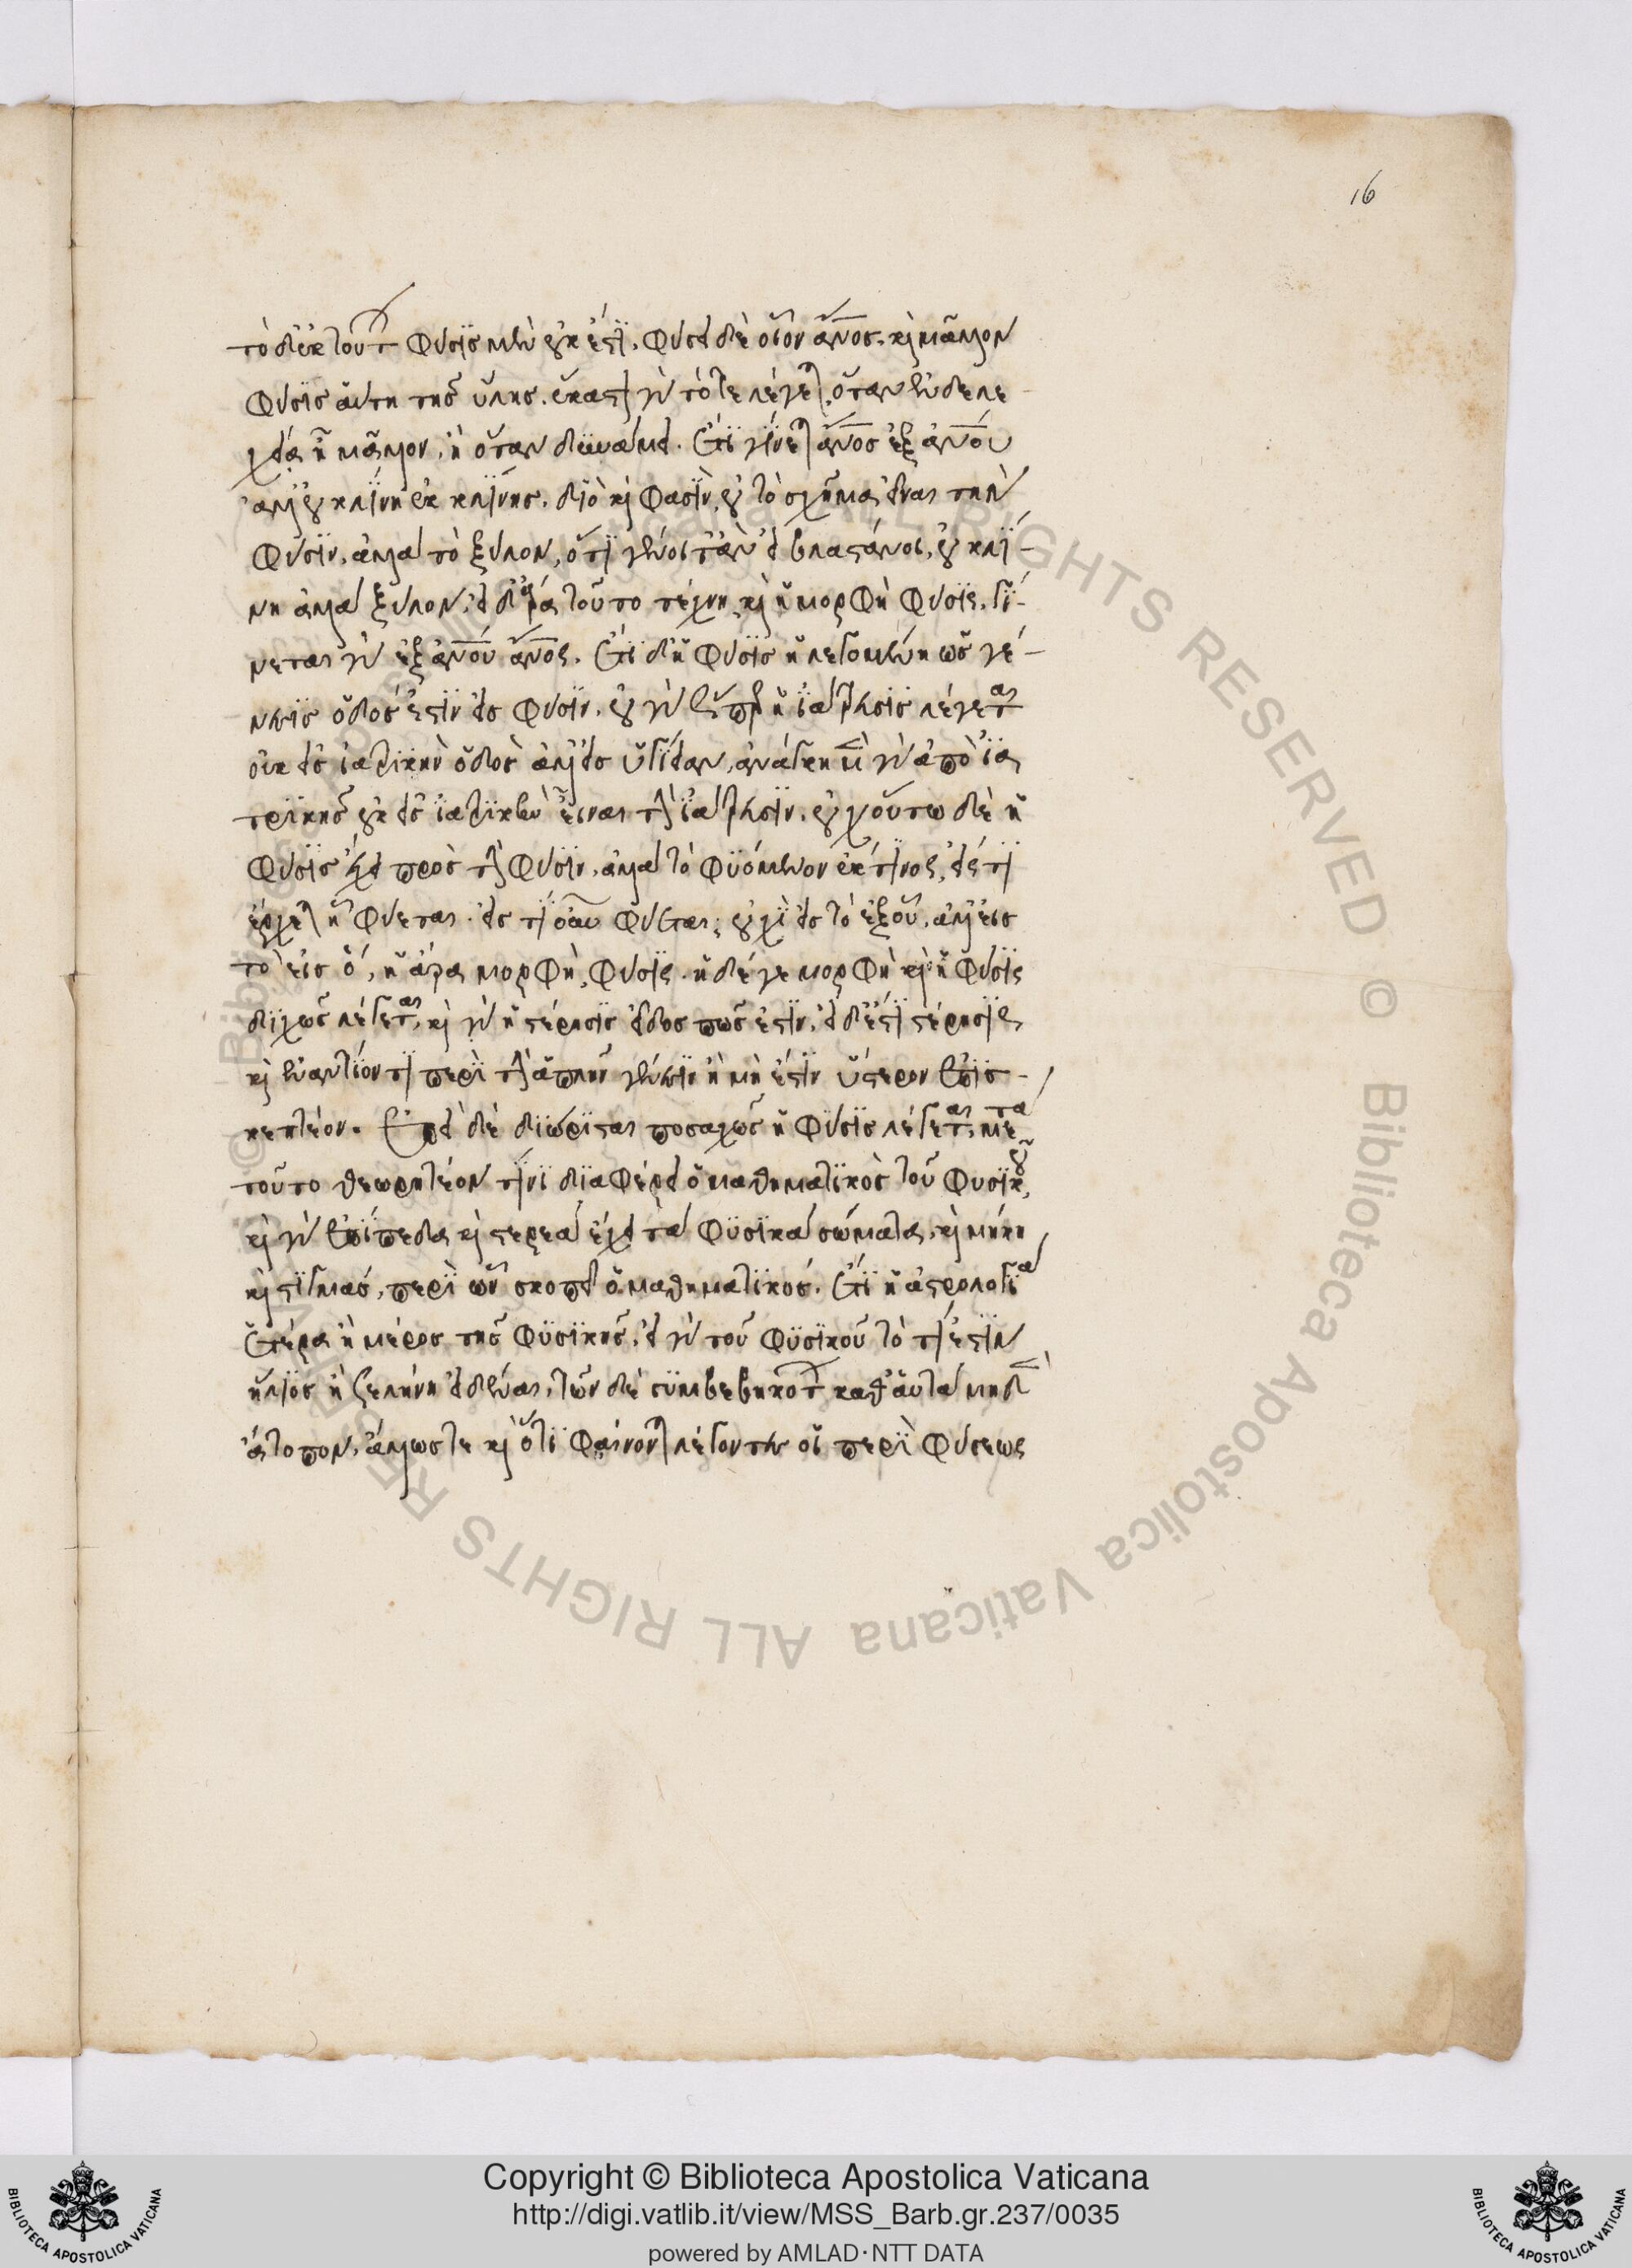 16
τὸ δ' ἐκ τούτ φύσϊς μὲν οὐκ ἔστϊ, φύσει δὲ οἷον ἄνος. κὶ μᾶλλον
φύσϊς αὕτη τῆς ὕλης. ἕκαστ γὰρ τότε λέγε, ὅταν ἐντελε
χεία ἦ μᾶλλον, ἢ ὅταν δυνάμει. ἔτϊ γίνε ἄνος ἐξ ἀνου
ἀλλ' οὐ κλίνη ἐκ κλίνης. διὸ κὶ φασϊν, οὐ τὸ σχῆμα εἶναι τὴν
φύσϊν, ἀλλὰ τὸ ξύλον, ὅτϊ γένοιτ' ἂν εἰ βλαστάνοι, οὐ κλί-
νη ἀλλὰ ξύλον, εἰ δ' ἄρα τοῦτο τέχνη, κὶ ἡ μορφὴ φύσϊς. γί-
νεται γὰρ ἐξ ἀνου ἄνος. ἔτϊ δ' ἡ φύσϊς ἡ λεγομένη ὡς γέ-
νεσϊς ὁδός ἐστϊν εἰς φύσϊν. οὐ γὰρ ὥσπερ ἡ ἰάτρευσϊς λέγετ
οὐκ εἰς ἰατρικὴν ὁδὸς ἀλλ' εἰς ὑγίειαν, ἀνάγκη μ γὰρ ἀπὸ ἰα
τρικῆς οὐκ εἰς ἰατρικὴν εἶναι τὴν ἰάτρευσϊν. οὐχ οὕτω δὲ ἡ
φύσϊς ἔχει πρὸς τὴν φύσϊν, ἀλλὰ τὸ φυόμενον ἐκ τϊνος, εἴς τϊ
ἔρχε ἢ φύεται. εἰς τί οὖν φύεται; οὐχὶ εἰς τὸ ἐξ οὗ, ἀλλ' εἰς
τὸ εἰς ὅ, ἡ ἄρα μορφὴ, φύσϊς. ἡ δέ γε μορφὴ κὶ ἡ φύσϊς
διχῶς λέγετ, κὶ γὰρ ἡ στέρησϊς εἶδος πώς ἐστϊν. εἰ δ' ἔστϊ στέρησϊς
κὶ ἐναντίον τϊ περὶ τὴν ἁπλῆν γένεσϊν ἢ μὴ ἔστϊν ὕστερον ἐπϊσ-
κεπτέον. Ἐπεὶ δὲ διώρισται ποσαχῶς ἡ φύσϊς λέγετ, μετὰ
τοῦτο θεωρητέον τίνϊ διαφέρει ὁ μαθηματικὸς τοῦ φυσϊκοῦ,
κὶ γὰρ ἐπίπεδα κὶ στερεὰ ἔχει τὰ φυσϊκὰ σώματα, κὶ μήκη
κὶ στϊγμάς, περὶ ὧν σκοπεῖ ὁ μαθηματικός. ἔτϊ ἡ ἀστρολογία
ἑτέρα ἢ μέρος τῆς φυσϊκῆς. εἰ γὰρ τοῦ φυσϊκοῦ τὸ τί ἐστϊν
ἥλιος ἢ σελήνη εἰδέναι, τῶν δὲ συμβεβηκότ καθ' αὑτὰ μηδ
ἄτοπον, ἄλλως τε κὶ ὅτϊ φαίνον λέγοντες οἱ περὶ φύσεως
Copyright © Biblioteca Apostolica Vaticana
http://digi.vatlib.it/view/MSS_Barb.gr.237/0035
powered by AMLAD·NTT DATA